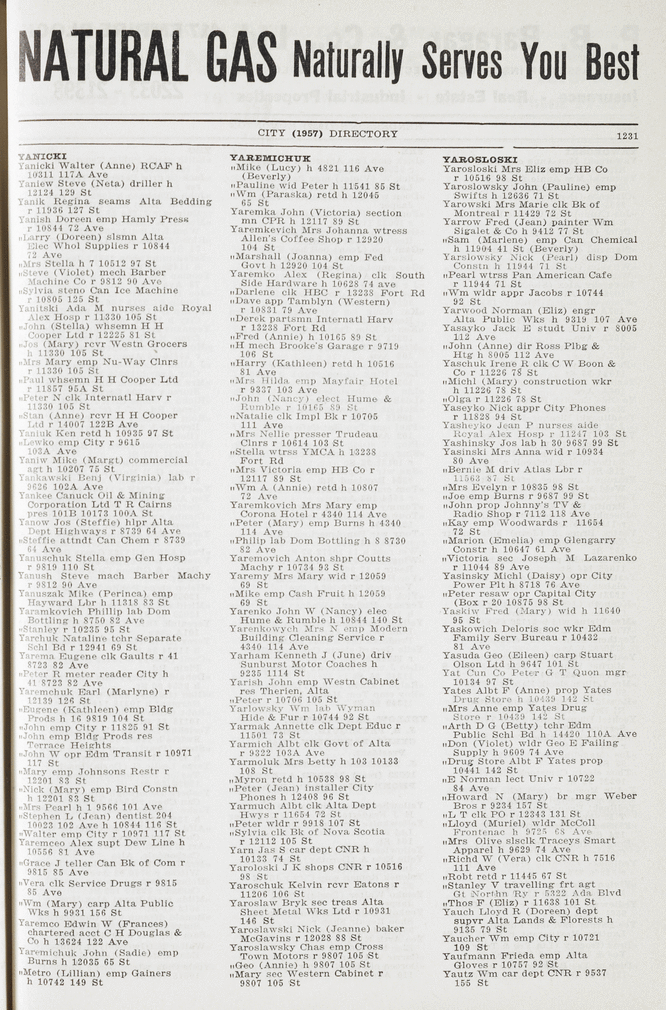 NATURAL GAS Naturally Serves You Best
CITY (1957) DIRECTORY
1231
YANICKI
Yanicki Walter (Anne) RCAF h
10311 117A Ave
Yaniew Steve (Neta) driller h
12124 129 St
Yanik Regina seams Alta Bedding
r 11936 127 St
Yanish Doreen emp Hamly Press
r 10844 72 Ave
„Larry (Doreen) slsmn Alta
Elec Whol Supplies r 10844
72 Ave
„Mrs Stella h 7 10512 97 St
„Steve (Violet) mech Barber
Machine Co r 9812 90 Ave
„Sylvia steno Can Ice Machine
r 10805 125 St
Yanitski Ada M nurses aide Royal
Alex Hosp r 11330 105 St
„John (Stella) whsemn H H
Cooper Ltd r 12225 81 St
„Jos (Mary) rcvr Westn Grocers
h 11330 105 St
„Mrs Mary emp Nu-Way Clnrs
r 11330 105 St
„Paul whsemn H H Cooper Ltd
r 11857 95A St
„Peter N clk Internatl Harv r
11330 105 St
„Stan (Anne) rcvr H H Cooper
Ltd r 14007 122B Ave
Yaniuk Ken retd h 10935 97 St
„Lewko emp City r 9615
103A Ave
Yaniw Mike (Margt) commercial
agt h 10207 75 St
Yankawski Benj (Virginia) lab r
9626 102A Ave
Yankee Canuck Oil & Mining
Corporation Ltd T R Cairns
pres 101B 10173 100A St
Yanow Jos (Steffie) hlpr Alta
Dept Highways r 8739 64 Ave
„Steffie attndt Can Chem r 8739
64 Ave
Yanuschuk Stella emp Gen Hosp
r 9819 110 St
Yanush Steve mach Barber Machy
r 9812 90 Ave
Yanuszak Mike (Perinca) emp
Hayward Lbr h 11318 83 St
Yaramkovich Phillip lab Dom
Bottling h 8750 82 Ave
„Stanley r 10235 95 St
Yarchuk Nataline tchr Separate
Schl Bd r 12941 69 St
Yarema Eugene clk Gaults r 41
8723 82 Ave
„Peter R meter reader City h
41 8723 82 Ave
Yaremchuk Earl (Marlyne) r
12139 126 St
„Eugene (Kathleen) emp Bldg
Prods h 16 9819 104 St
„John emp City r 11825 91 St
„John emp Bldg Prods res
Terrace Heights
„John W opr Edm Transit r 10971
117 St
„Mary emp Johnsons Restr r
12201 83 St
„Nick (Mary) emp Bird Constn
h 12201 83 St
„Mrs Pearl h 1 9566 101 Ave
„Stephen L (Jean) dentist 204
10023 102 Ave h 10844 116 St
„Walter emp City r 10971 117 St
Yaremceo Alex supt Dew Line h
10556 81 Ave
„Grace J teller Can Bk of Com r
9815 85 Ave
„Vera clk Service Drugs r 9815
85 Ave
„Wm (Mary) carp Alta Public
Wks h 9931 156 St
Yaremco Edwin W (Frances)
chartered acct C H Douglas &
Co h 13624 122 Ave
Yaremichuk John (Sadie) emp
Burns h 12035 65 St
„Metro (Lillian) emp Gainers
h 10742 149 St
YAREMICHUK
„Mike (Lucy) h 4821 116 Ave
(Beverly)
„Pauline wid Peter h 11541 85 St
„Wm (Paraska) retd h 12045
65 St
Yaremka John (Victoria) section
mn CPR h 12117 89 St
Yaremkevich Mrs Johanna wtress
Allen's Coffee Shop r 12920
104 St
„Marshall (Joanna) emp Fed
Govt h 12920 104 St
Yaremko Alex (Regina) clk South
Side Hardware h 10628 74 ave
„Darlene clk HBC r 13238 Fort Rd
„Dave app Tamblyn (Western)
r 10831 79 Ave
„Derek partsmn Internatl Harv
r 13238 Fort Rd
„Fred (Annie) h 10165 89 St
„H mech Brooke's Garage r 9719
106 St
„Harry (Kathleen) retd h 10516
81 Ave
„Mrs Hilda emp Mayfair Hotel
r 9337 103 Ave
„John (Nancy) elect Hume &
Rumble r 10165 89 St
„Natalie clk Impl Bk r 10705
111 Ave
„Mrs Nellie presser Trudeau
Clnrs r 10614 103 St
„Stella wtrss YMCA h 13238
Fort Rd
„Mrs Victoria emp HB Co r
12117 89 St
„Wm A (Annie) retd h 10807
72 Ave
Yaremkovich Mrs Mary emp
Corona Hotel r 4340 114 Ave
„Peter (Mary) emp Burns h 4340
114 Ave
„Philip lab Dom Bottling h 8 8730
82 Ave
Yaremovich Anton shpr Coutts
Machy r 10734 93 St
Yaremy Mrs Mary wid r 12059
69 St
„Mike emp Cash Fruit h 12059
69 St
Yarenko John W (Nancy) elec
Hume & Rumble h 10844 140 St
Yarenkowych Mrs N emp Modern
Building Cleaning Service r
4340 114 Ave
Yarham Kenneth J (June) driv
Sunburst Motor Coaches h
9235 1114 St
Yarish John emp Westn Cabinet
res Therien, Alta
„Peter r 10706 105 St
Yarlowsky Wm lab Wyman
Hide & Fur r 10744 92 St
Yarmak Annette clk Dept Educ r
11501 73 St
Yarmich Albt clk Govt of Alta
r 9322 103A Ave
Yarmoluk Mrs Letty h 103 10133
108 St
„Myron retd h 10538 98 St
„Peter (Jean) installer City
Phones h 12408 96 St
Yarmuch Albt clk Alta Dept
Hwys r 11654 72 St
„Peter wldr r 9918 107 St
„Sylvia clk Bk of Nova Scotia
r 12112 105 St
Yarn Jas S car dept CNR h
10133 74 St
Yaroloski J K shops CNR r 10516
98 St
Yaroschuk Kelvin rcvr Eatons r
11206 106 St
Yaroslaw Bryk sec treas Alta
Sheet Metal Wks Ltd r 10931
146 St
Yaroslawski Nick (Jeanne) baker
McGavins r 12028 88 St
Yaroslawsky Chas emp Cross
Town Motors r 9807 105 St
„Geo (Annie) h 9807 105 St
„Mary sec Western Cabinet r
9807 105 St
YAROSLOSKI
Yarosloski Mrs Eliz emp HB Co
r 10516 98 St
Yaroslowsky John (Pauline) emp
Swifts h 12636 71 St
Yarowski Mrs Marie clk Bk of
Montreal r 11429 72 St
Yarrow Fred (Jean) painter Wm
Sigalet & Co h 9412 77 St
„Sam (Marlene) emp Can Chemical
h 11904 41 St (Beverly)
Yarslowsky Nick (Pearl) disp Dom
Constn h 11944 71 St
„Pearl wtrss Pan American Cafe
r 11944 71 St
„Wm wldr appr Jacobs r 10744
92 St
Yarwood Norman (Eliz) engr
Alta Public Wks h 9319 107 Ave
Yasayko Jack E studt Univ r 8005
112 Ave
„John (Anne) dir Ross Plbg &
Htg h 8005 112 Ave
Yaschuk Irene R clk C W Boon &
Co r 11226 78 St
„Michl (Mary) construction wkr
h 11226 78 St
„Olga r 11226 78 St
Yaseyko Nick appr City Phones
r 11828 94 St
Yasheyko Jean P nurses aide
Royal Alex Hosp r 11247 103 St
Yashinsky Jos lab h 30 9687 99 St
Yasinski Mrs Anna wid r 10934
80 Ave
„Bernie M driv Atlas Lbr r
11563 87 St
„Mrs Evelyn r 10835 98 St
„Joe emp Burns r 9687 99 St
„John prop Johnny's TV &
Radio Shop r 7112 118 Ave
„Kay emp Woodwards r 11654
72 St
„Marion (Emelia) emp Glengarry
Constr h 10647 61 Ave
„Victoria sec Joseph M Lazarenko
r 11044 89 Ave
Yasinsky Michl (Daisy) opr City
Power Plt h 8718 76 Ave
„Peter resaw opr Capital City
(Box r 20 10875 98 St
Yaskiw Fred (Mary) wid h 11640
95 St
Yaskowich Deloris soc wkr Edm
Family Serv Bureau r 10432
81 Ave
Yasuda Geo (Eileen) carp Stuart
Olson Ltd h 9647 101 St
Yat Cun Co Peter G T Quon mgr
10134 97 St
Yates Albt F (Anne) prop Yates
Drug Store h 10439 142 St
„Mrs Anne emp Yates Drug
Store r 10439 142 St
„Arth D G (Betty) tchr Edm
Public Schl Bd h 14420 110A Ave
„Don (Violet) wldr Geo E Failing
Supply h 9609 74 Ave
„Drug Store Albt F Yates prop
10441 142 St
„E Norman lect Univ r 10722
84 Ave
„Howard N (Mary) br mgr Weber
Bros r 9234 157 St
„L T clk PO r 12343 131 St
„Lloyd (Muriel) wldr McColl
Frontenac h 9725 68 Ave
„Mrs Olive slsclk Traceys Smart
Apparel h 9629 74 Ave
„Richd W (Vera) clk CNR h 7516
111 Ave
„Robt retd r 11445 67 St
„Stanley V travelling frt agt
Gt Northn Ry r 5322 Ada Blvd
„Thos F (Eliz) r 11638 101 St
Yauch Lloyd R (Doreen) dept
supvr Alta Lands & Florests h
9135 79 St
Yaucher Wm emp City r 10721
109 St
Yaufmann Frieda emp Alta
Gloves r 10757 92 St
Yautz Wm car dept CNR r 9537
155 St